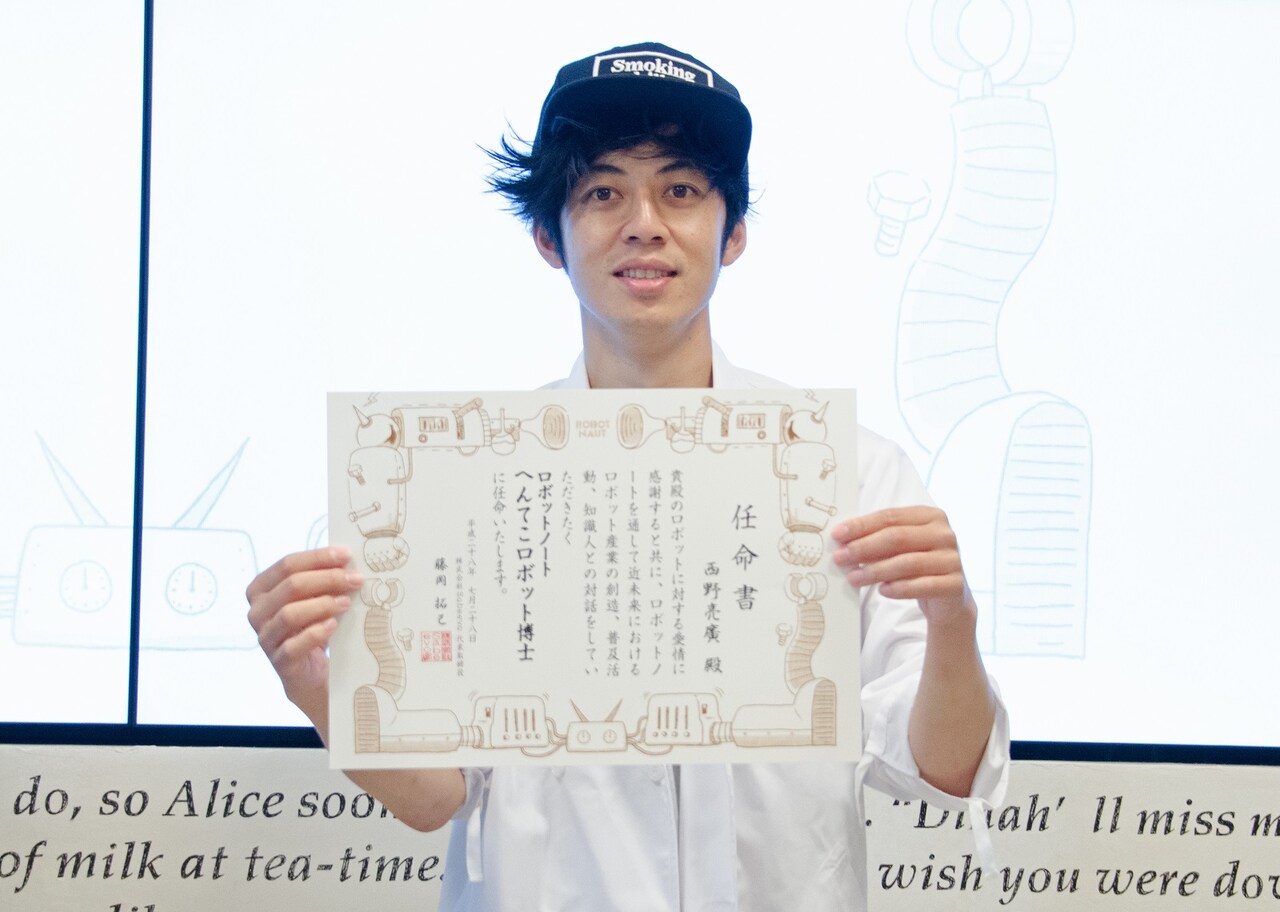 Smoking
ROBOT
NAUT
任命書
西野亮廣 殿
貴殿のロボットに対する愛情に
感謝すると共に、ロボットノ
ートを通して近未来における
ロボット産業の創造、普及活
動、知識人との対話をしてい
ただきたく
ロボットノート
へんてこロボット博士
に任命いたします。
平成二十八年 七月二十八日
株式会社 代表取締役
藤岡 拓己
do, so Alice soon
of milk at tea-time.
. "Dinah' ll miss m
wish you were dow